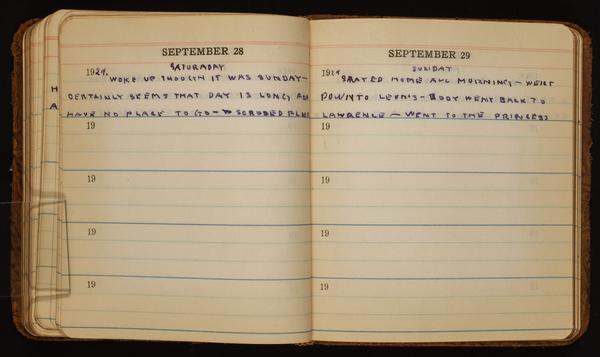 SEPTEMBER 28
SATURADAY
1929. WOKE UP THOUGH IT WAS SUNDAY-
CERTAINLY SEEMS THAT DAY IS LONG AND
HAVE NO PLACE TO GO - SCRUBBED
19
19
19
19
H
A
SEPTEMBER 29
SUNDAY
1929 STAYED HOME ALL MORNING - WENT
DOWN TO LEON'S - BODY WENT BACK TO
LAWRENCE - WENT TO THE PRINCESS
19
19
19
19